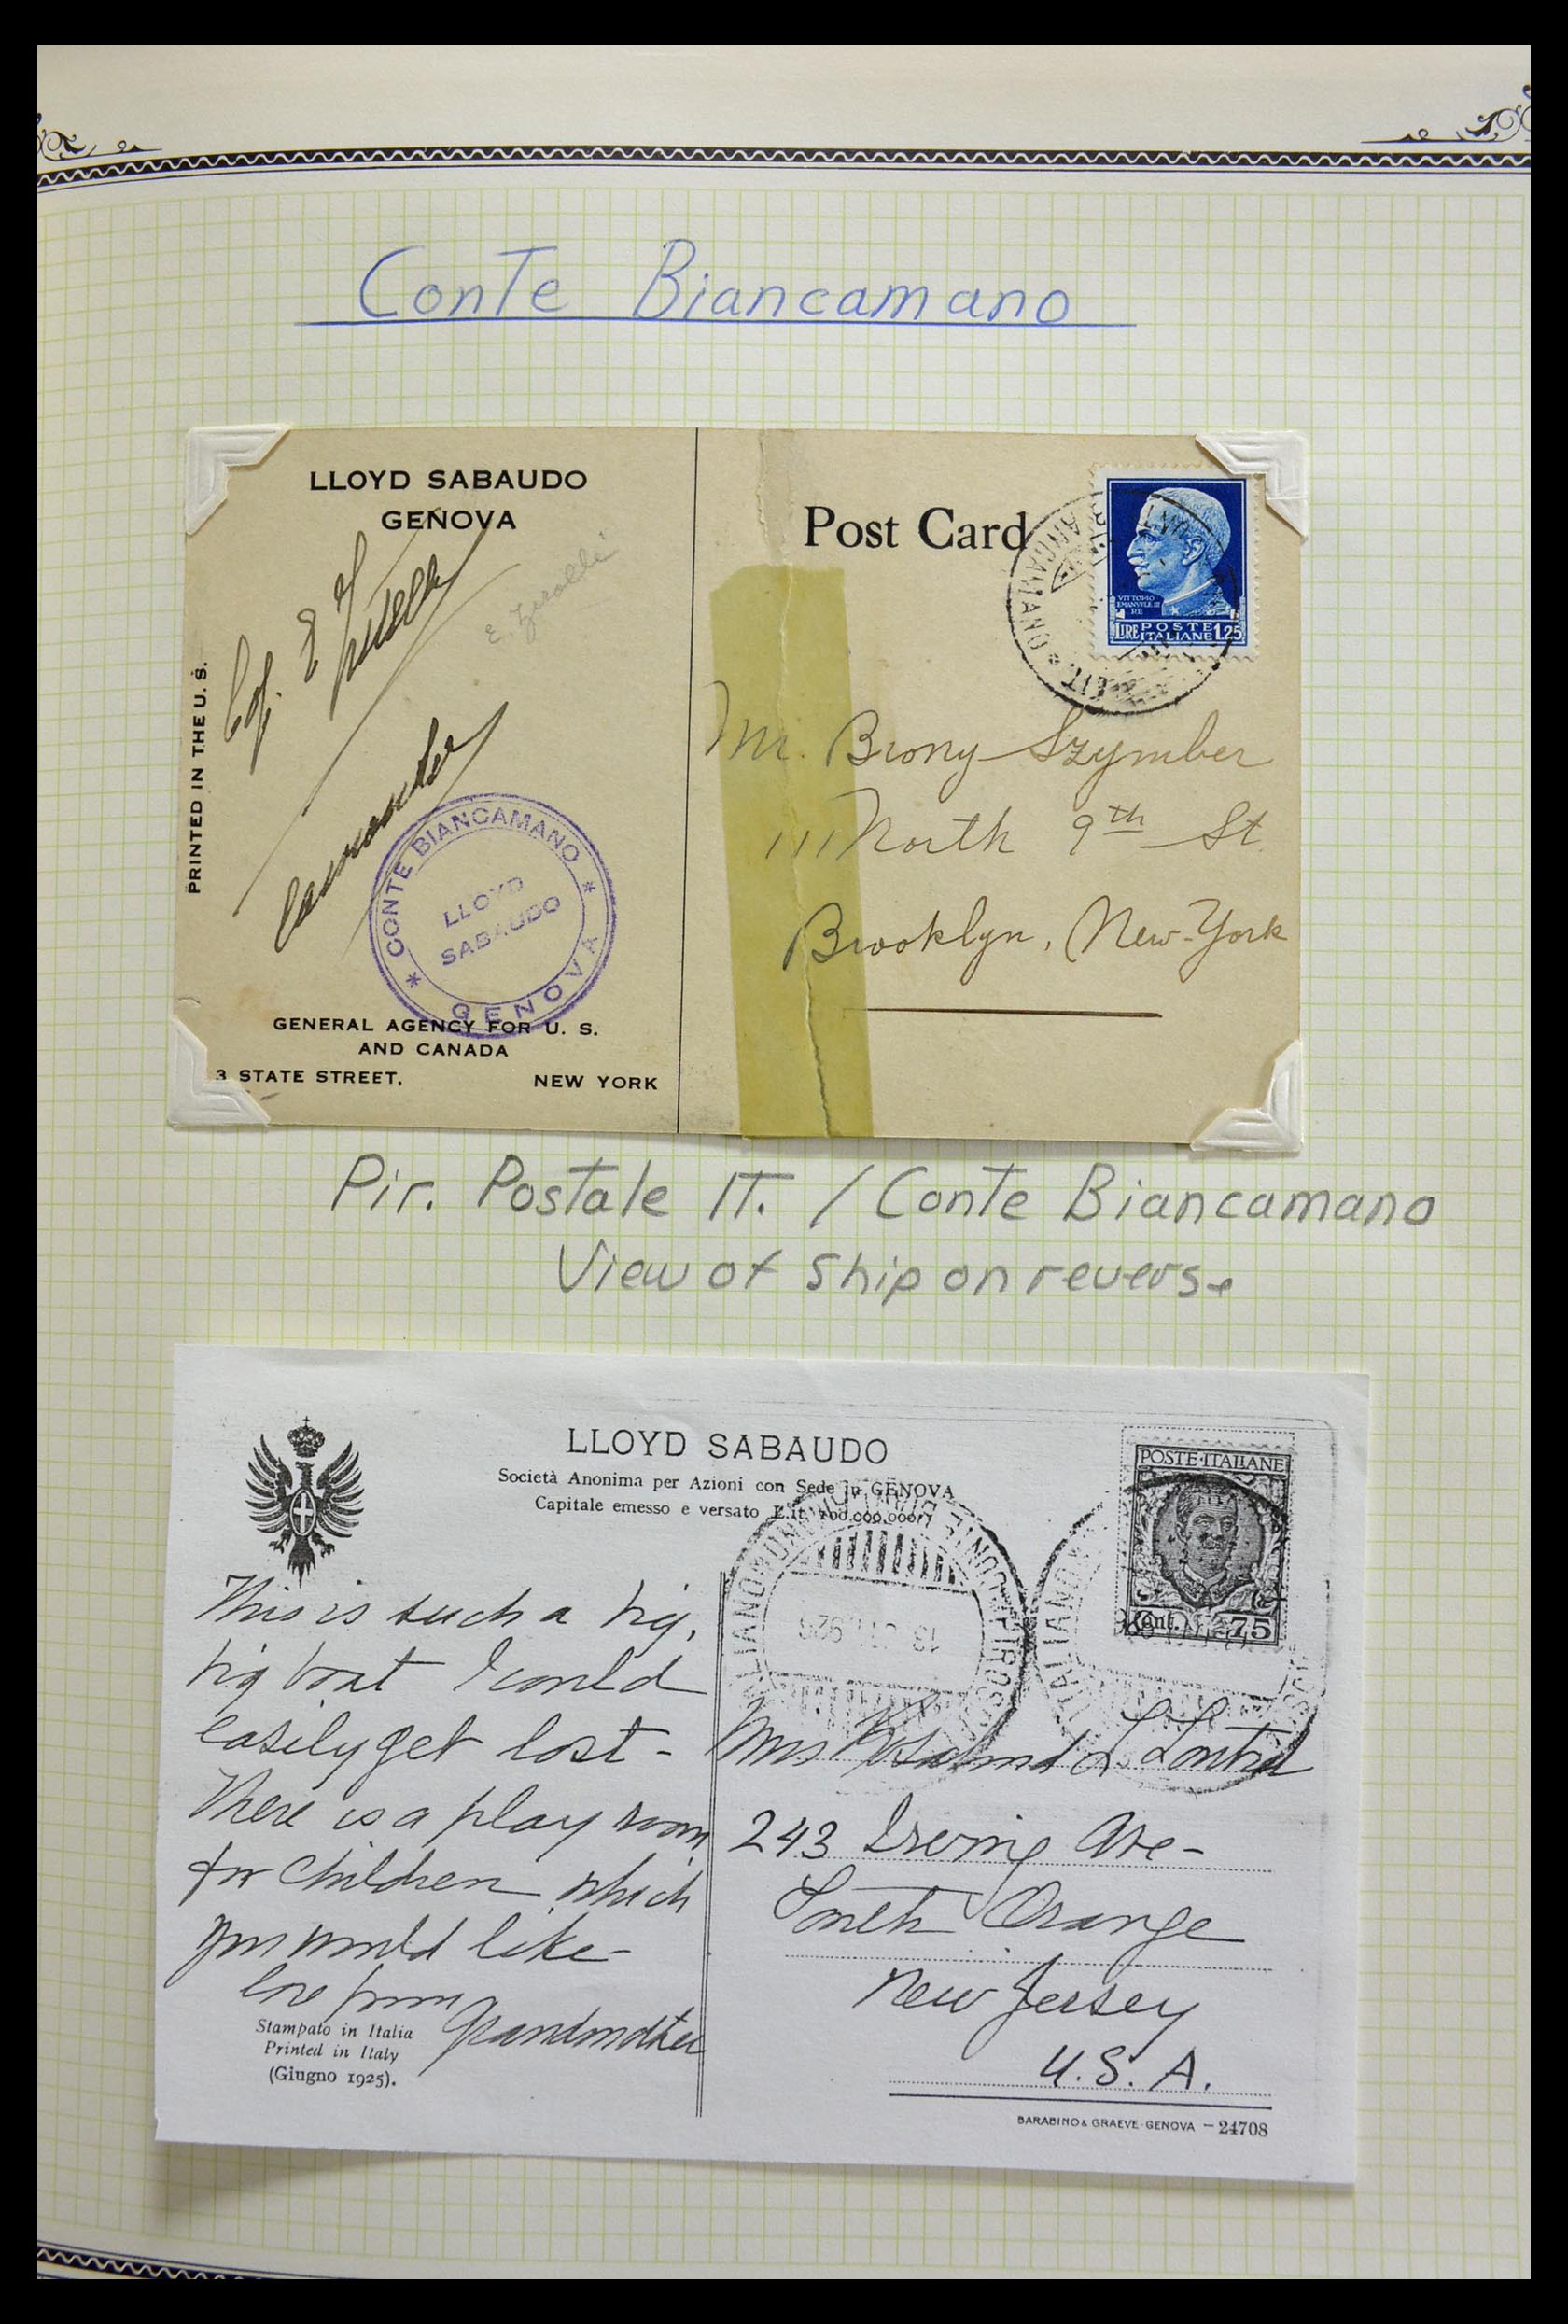 Conte Biancamano
LLOYD SABAUDO
GENOVA
E. Zerolli
Commander
PRINTED IN THE U. S.
* CONTE BIANCAMANO *
LLOYD
SABAUDO
GENOVA
GENERAL AGENCY FOR U. S.
AND CANADA
3 STATE STREET,
NEW YORK
Post Card
VITTORIO
EMANUELE III
RE
LIRE POSTE ITALIANE 1,25
Mr. Brony Szymber
111 North 9th St.
Brooklyn, New-York
Pir. Postale IT. / Conte Biancamano
View of Ship on reverse
LLOYD SABAUDO
Società Anonima per Azioni con Sede in GENOVA
Capitale emesso e versato
POSTE·ITALIANE
Cent. 75
This is such a big,
big boat I could
easily get lost -
There is a play room
for children which
you would like -
love from
Grandmother
Stampato in Italia
Printed in Italy
(Giugno 1925).
Miss Rosalind L
243 Irving Ave -
South Orange
New Jersey
U.S.A.
BARABINO & GRAEVE - GENOVA - 24708